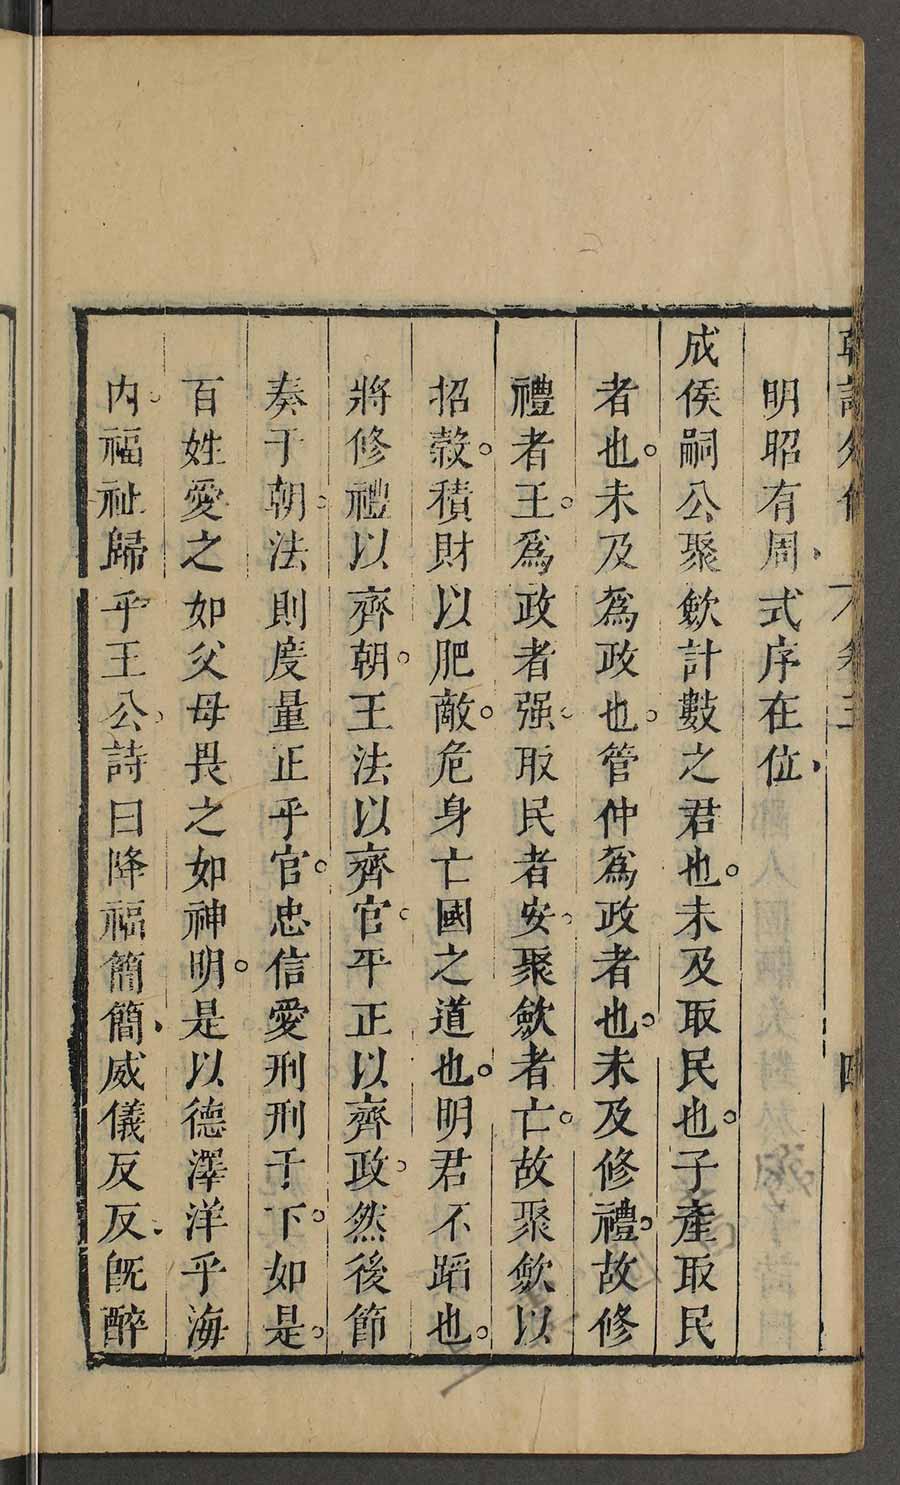 韓詩外傳 卷三 四
明昭有周式序在位
成侯嗣公聚斂計數之君也。未及取民也。子產取民
者也。未及爲政也。管仲爲政者也。未及修禮。故修
禮者王。爲政者强。取民者安。聚斂者亡。故聚斂以
招㓂。積財以肥敵。危身亡國之道也。明君不蹈也。
將修禮以齊朝。王法以齊官。平正以齊政。然後節
奏于朝。法則度量正乎官。忠信愛刑刑于下。如是。
百姓愛之如父母畏之如神明。是以德澤洋乎海
内。福祉歸乎王公。詩曰降福簡簡威儀反反旣醉